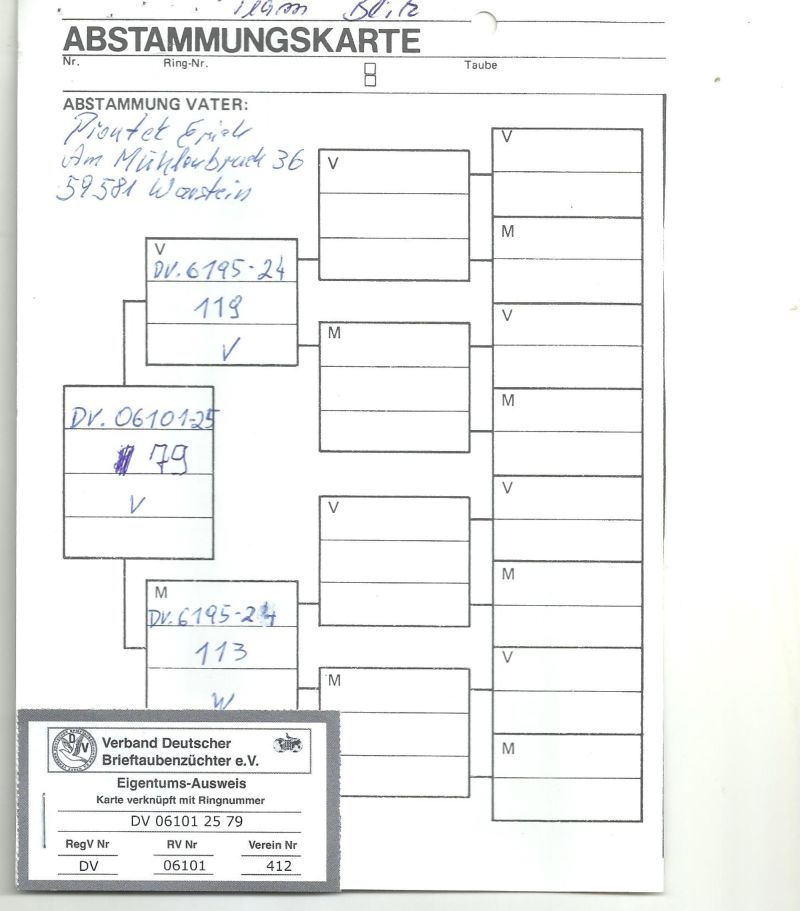 Blitz
ABSTAMMUNGSKARTE
Nr. Ring-Nr. Taube
ABSTAMMUNG VATER:
Piontek Erich
Am Mühlenbruch 36
59581 Warstein
V
V
M
V
DV. 6195-24
119
V
V
M
M
DV. 06101-25
79
V
V
V
M
M
DV. 6195-24
113
W
V
M
M
Verband Deutscher
Brieftaubenzüchter e.V.
Eigentums-Ausweis
Karte verknüpft mit Ringnummer
DV 06101 25 79
RegV Nr RV Nr Verein Nr
DV 06101 412